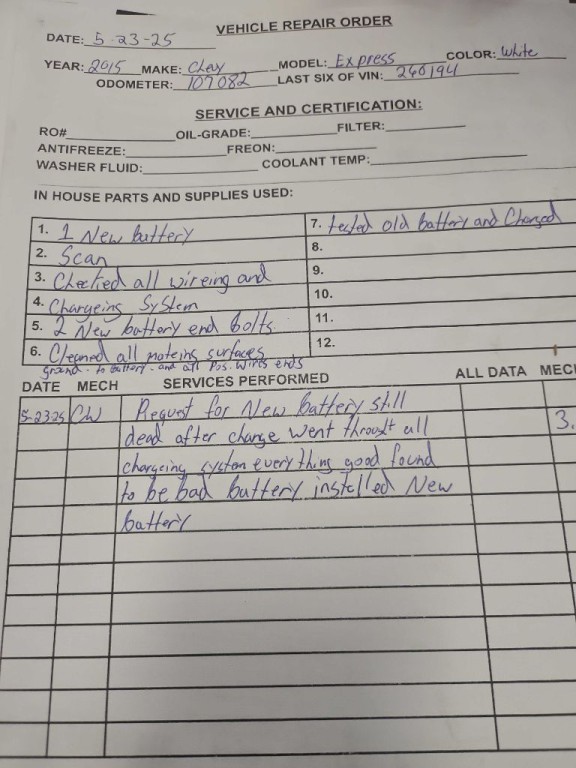 VEHICLE REPAIR ORDER
DATE: 5-23-25
YEAR: 2015 MAKE: Chey MODEL: Express COLOR: White
ODOMETER: 107082 LAST SIX OF VIN: 260194
SERVICE AND CERTIFICATION:
RO# OIL-GRADE: FILTER:
ANTIFREEZE: FREON:
WASHER FLUID: COOLANT TEMP:
IN HOUSE PARTS AND SUPPLIES USED:
1. 1 New battery
2. Scan
3. Checked all wireing and
4. Chargeing System
5. 2 New battery end bolts
6. Cleaned all mateing surfaces
ground - to battery - and all Pos. wires ends
7. tested old battery and Charged
8.
9.
10.
11.
12.
DATE MECH SERVICES PERFORMED ALL DATA MECH
5-23-25 CW Request for New battery still
dead after charge went throught all 3.
chargeing system every thing good found
to be bad battery installed New
battery